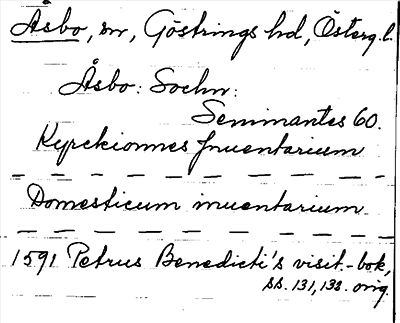 Åsbo, sn, Göstrings hd, Österg.l.
Åsbo: Sochn:
Seminantes 60.
Kyrckionnes Inuentarium
Domesticum inuentarium
1591 Petrus Benedicti's visit.-bok,
ss. 131, 132. orig.